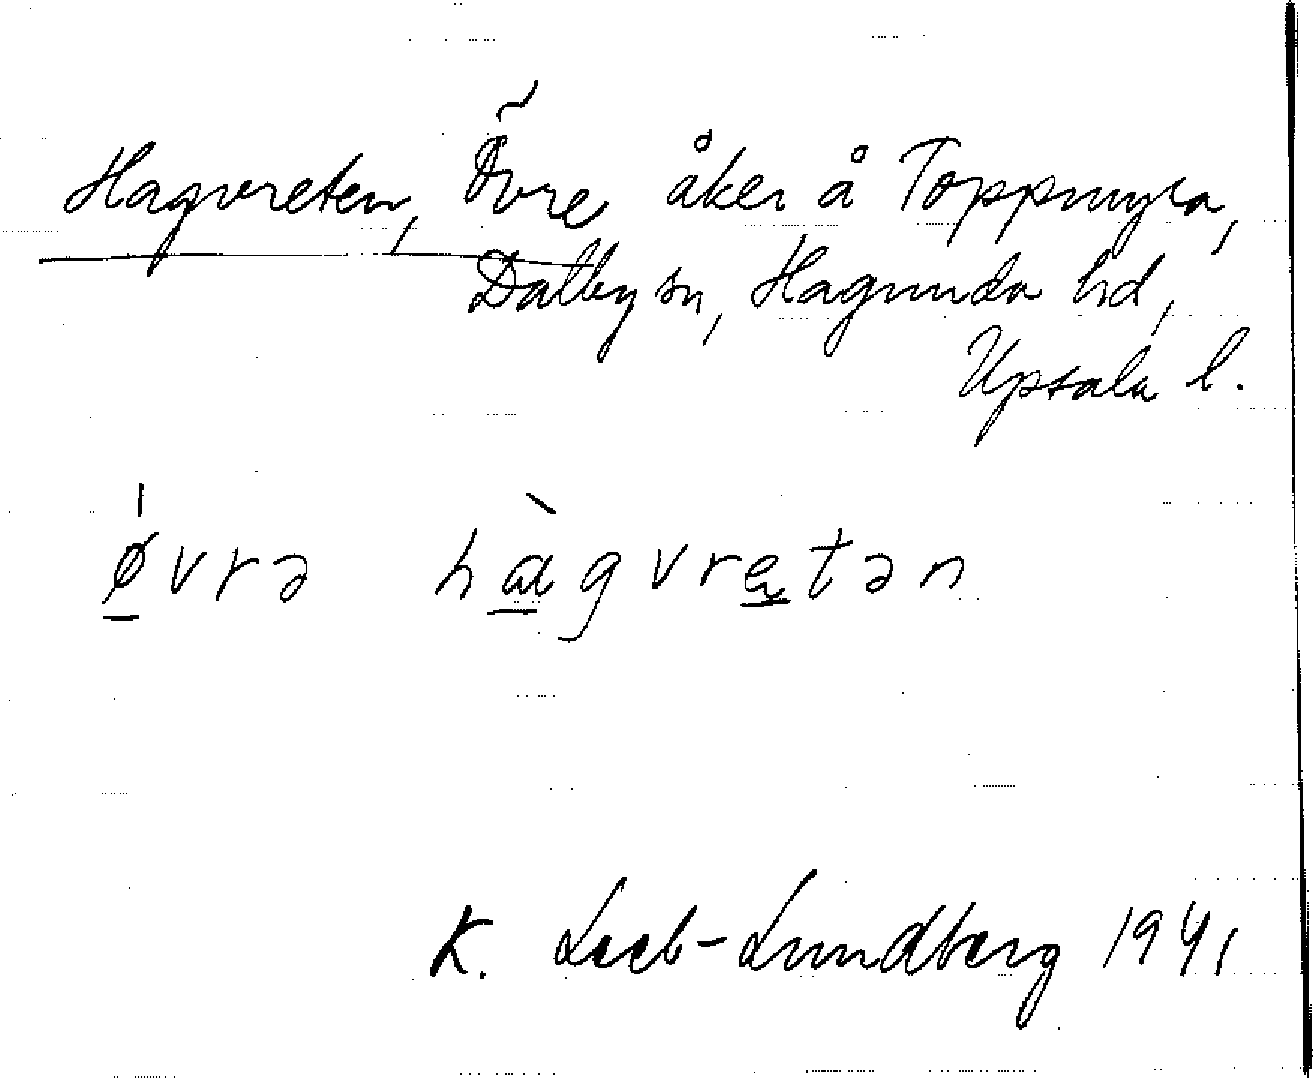 Hagvreten, Övre åker å Toppmyra,
Dalby sn, Hagunda hd,
Upsala l.
ǿvrə hàgvretən
K. Leeb-Lundberg 1941